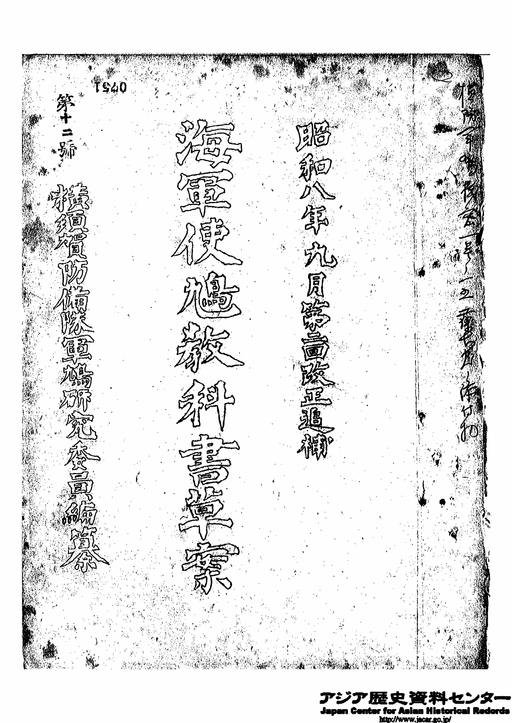 昭和八年九月第二回改正追補
海軍使鳩教科書草案
第十二號
横須賀防備隊軍鳩研究委員編纂
0751
アジア歴史資料センター
Japan Center for Asian Historical Records
http://www.jacar.go.jp/